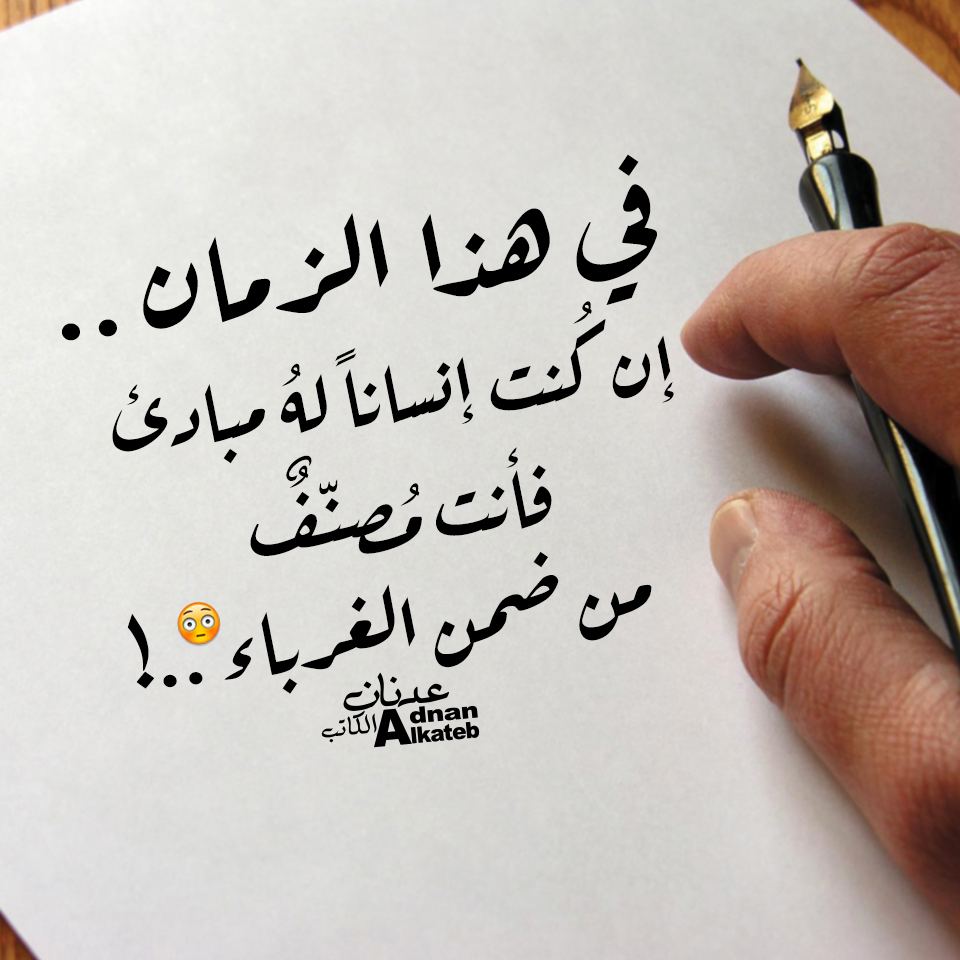 في هذا الزمان ..
إن كُنت إنساناً لهُ مبادئ
فأنت مُصنّفٌ
من ضمن الغرباء 😳..!
عدنان
الكاتب
Adnan
Alkateb